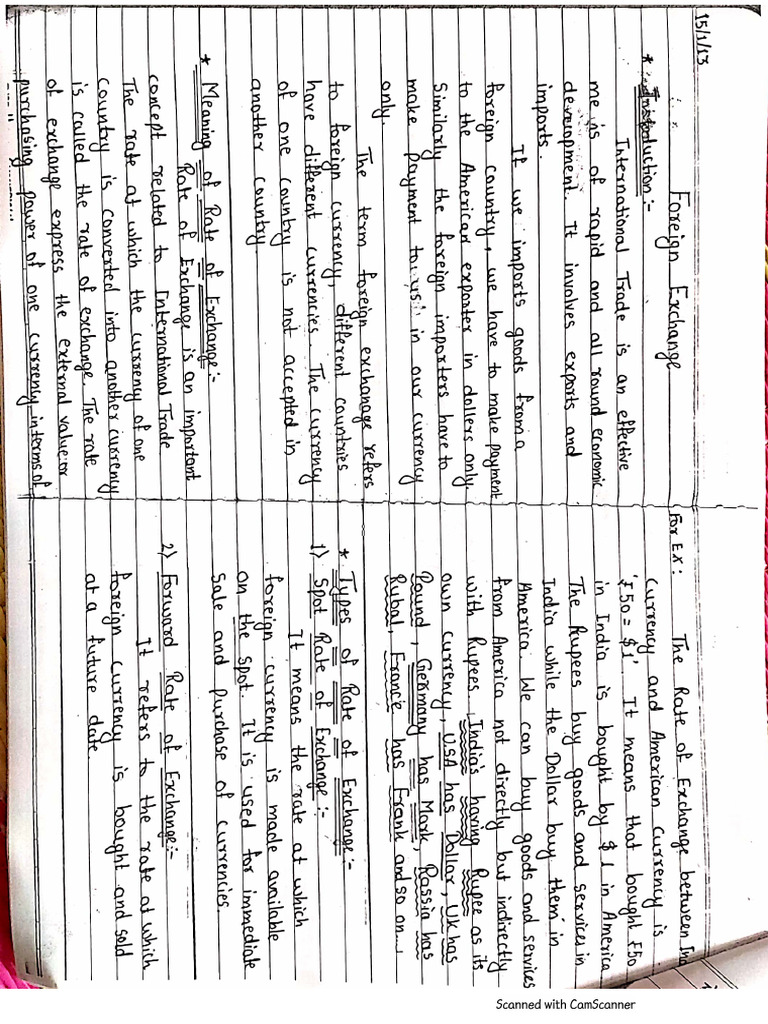 15/1/13
Foreign Exchange
* Introduction :-
International Trade is an effective
me is of rapid and all round economic
development. It involves exports and
imports.
If we imports goods from a
foreign country, we have to make payment
to the American exporter in dollers only
Similarly the foreign importers have to
make payment to us in our currency
only.
The term foreign exchange refers
to foreign currency, different countries
have different currencies. The currency
of one country is not accepted in
another country.
* Meaning of Rate of Exchange :-
Rate of Exchange is an important
concept related to International Trade
The rate at which the currency of one
country is converted into another currency
is called the rate of exchange. The rate
of exchange express the external value or
purchasing power of one currency in terms of
For Ex : The Rate of Exchange between Ind
Currency and American Currency is
'₹50 = $1'. It means that bought ₹50
in India is bought by $1 in America
The Rupees buy goods and services in
India while the Dollar buy them in
America. We can buy goods and services
from America not directly but indirectly
with Rupees, India's having Rupee as its
own currency, USA has Dollar, UK has
Pound, Germany has Mark, Rassia has
Rubal, Francie has Frank and so on....
* Types of Rate of Exchange :-
1) Spot Rate of Exchange :-
It means the rate at which
foreign currency is made available
on the spot. It is used for immediate
Sale and purchase of currencies.
2) Forward Rate of Exchange :-
It refers to the rate at which
foreign currency is bought and sold
at a future date.
Scanned with CamScanner